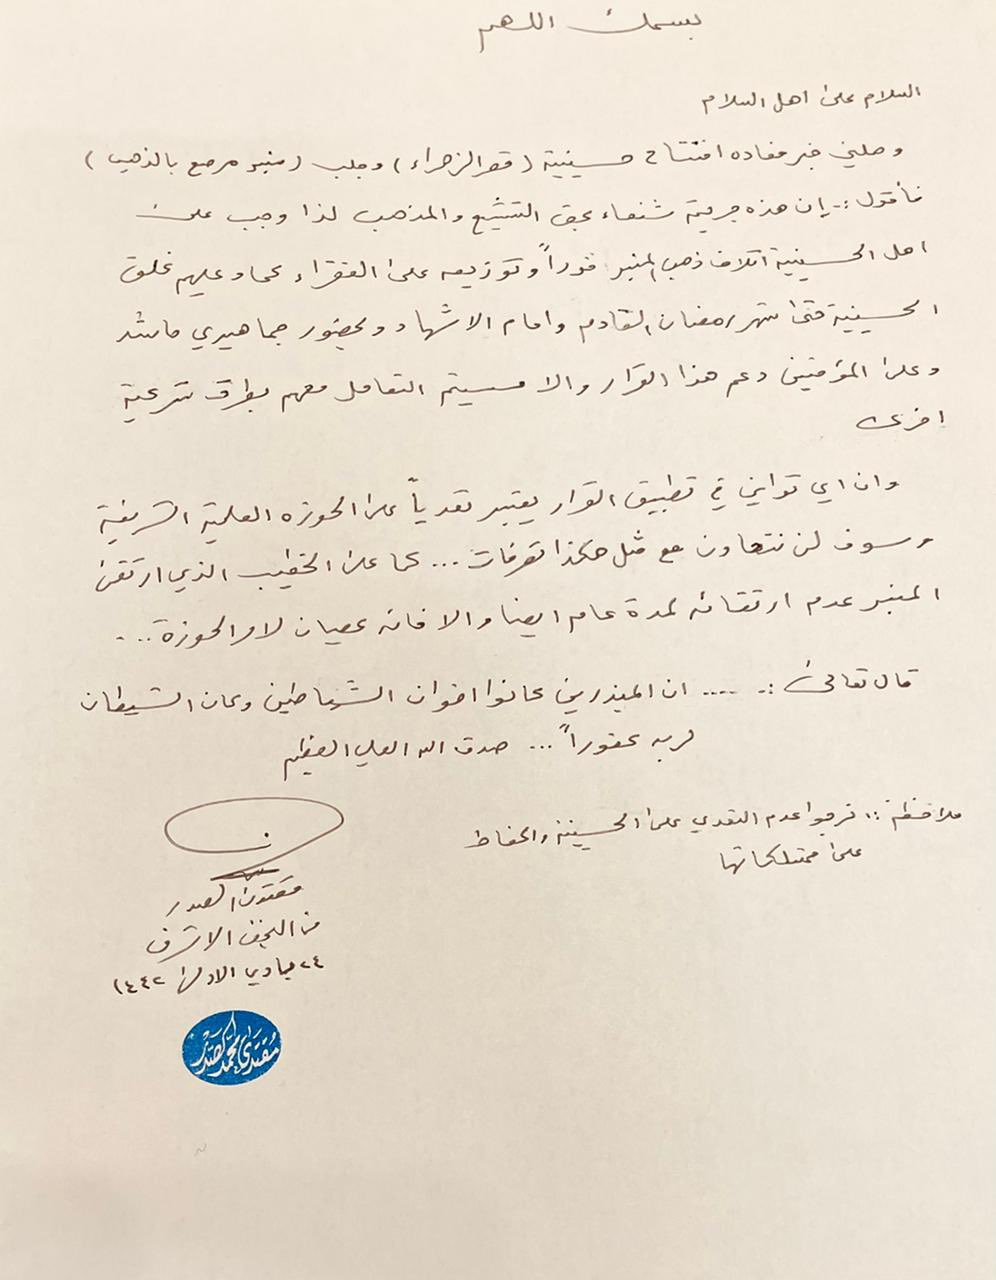 بسمك اللهم
السلام على اهل السلام
وصلني خبر مفاده افتتاح حسينية (قصر الزهراء) وجلب (منبر مرصع بالذهب)
فأقول :- إن هذه جريمة شنعاء بحق التشيع والمذهب لذا وجب على
اهل الحسينية اتلاف ذهب المنبر فوراً وتوزيعه على الفقراء كما وعليهم غلق
الحسينية حتى شهر رمضان القادم وامام الاشهاد وبحضور جماهيري حاشد
وعلى المؤمنين دعم هذا القرار والا سيتم التعامل معهم بطرق شرعية
اخرى
وان اي تواني في تطبيق القرار يعتبر تعدياً على الحوزه العلمية الشريفة
وسوف لن نتهاون مع مثل هكذا تصرفات ... كما على الخطيب الذي ارتقى
المنبر عدم ارتقائه لمدة عام ايضا والا فانه عصيان لأمر الحوزة ...
قال تعالى :- .... ان المبذرين كانوا اخوان الشياطين وكان الشيطان
لربه كفوراً ... صدق الله العلي العظيم
ملاحظة :: نرجوا عدم التعدي على الحسينية والحفاظ
على ممتلكاتها
مقتدى الصدر
من النجف الاشرف
٢٤ جمادي الاولى ١٤٤٢
مقتدى محمد الصدر